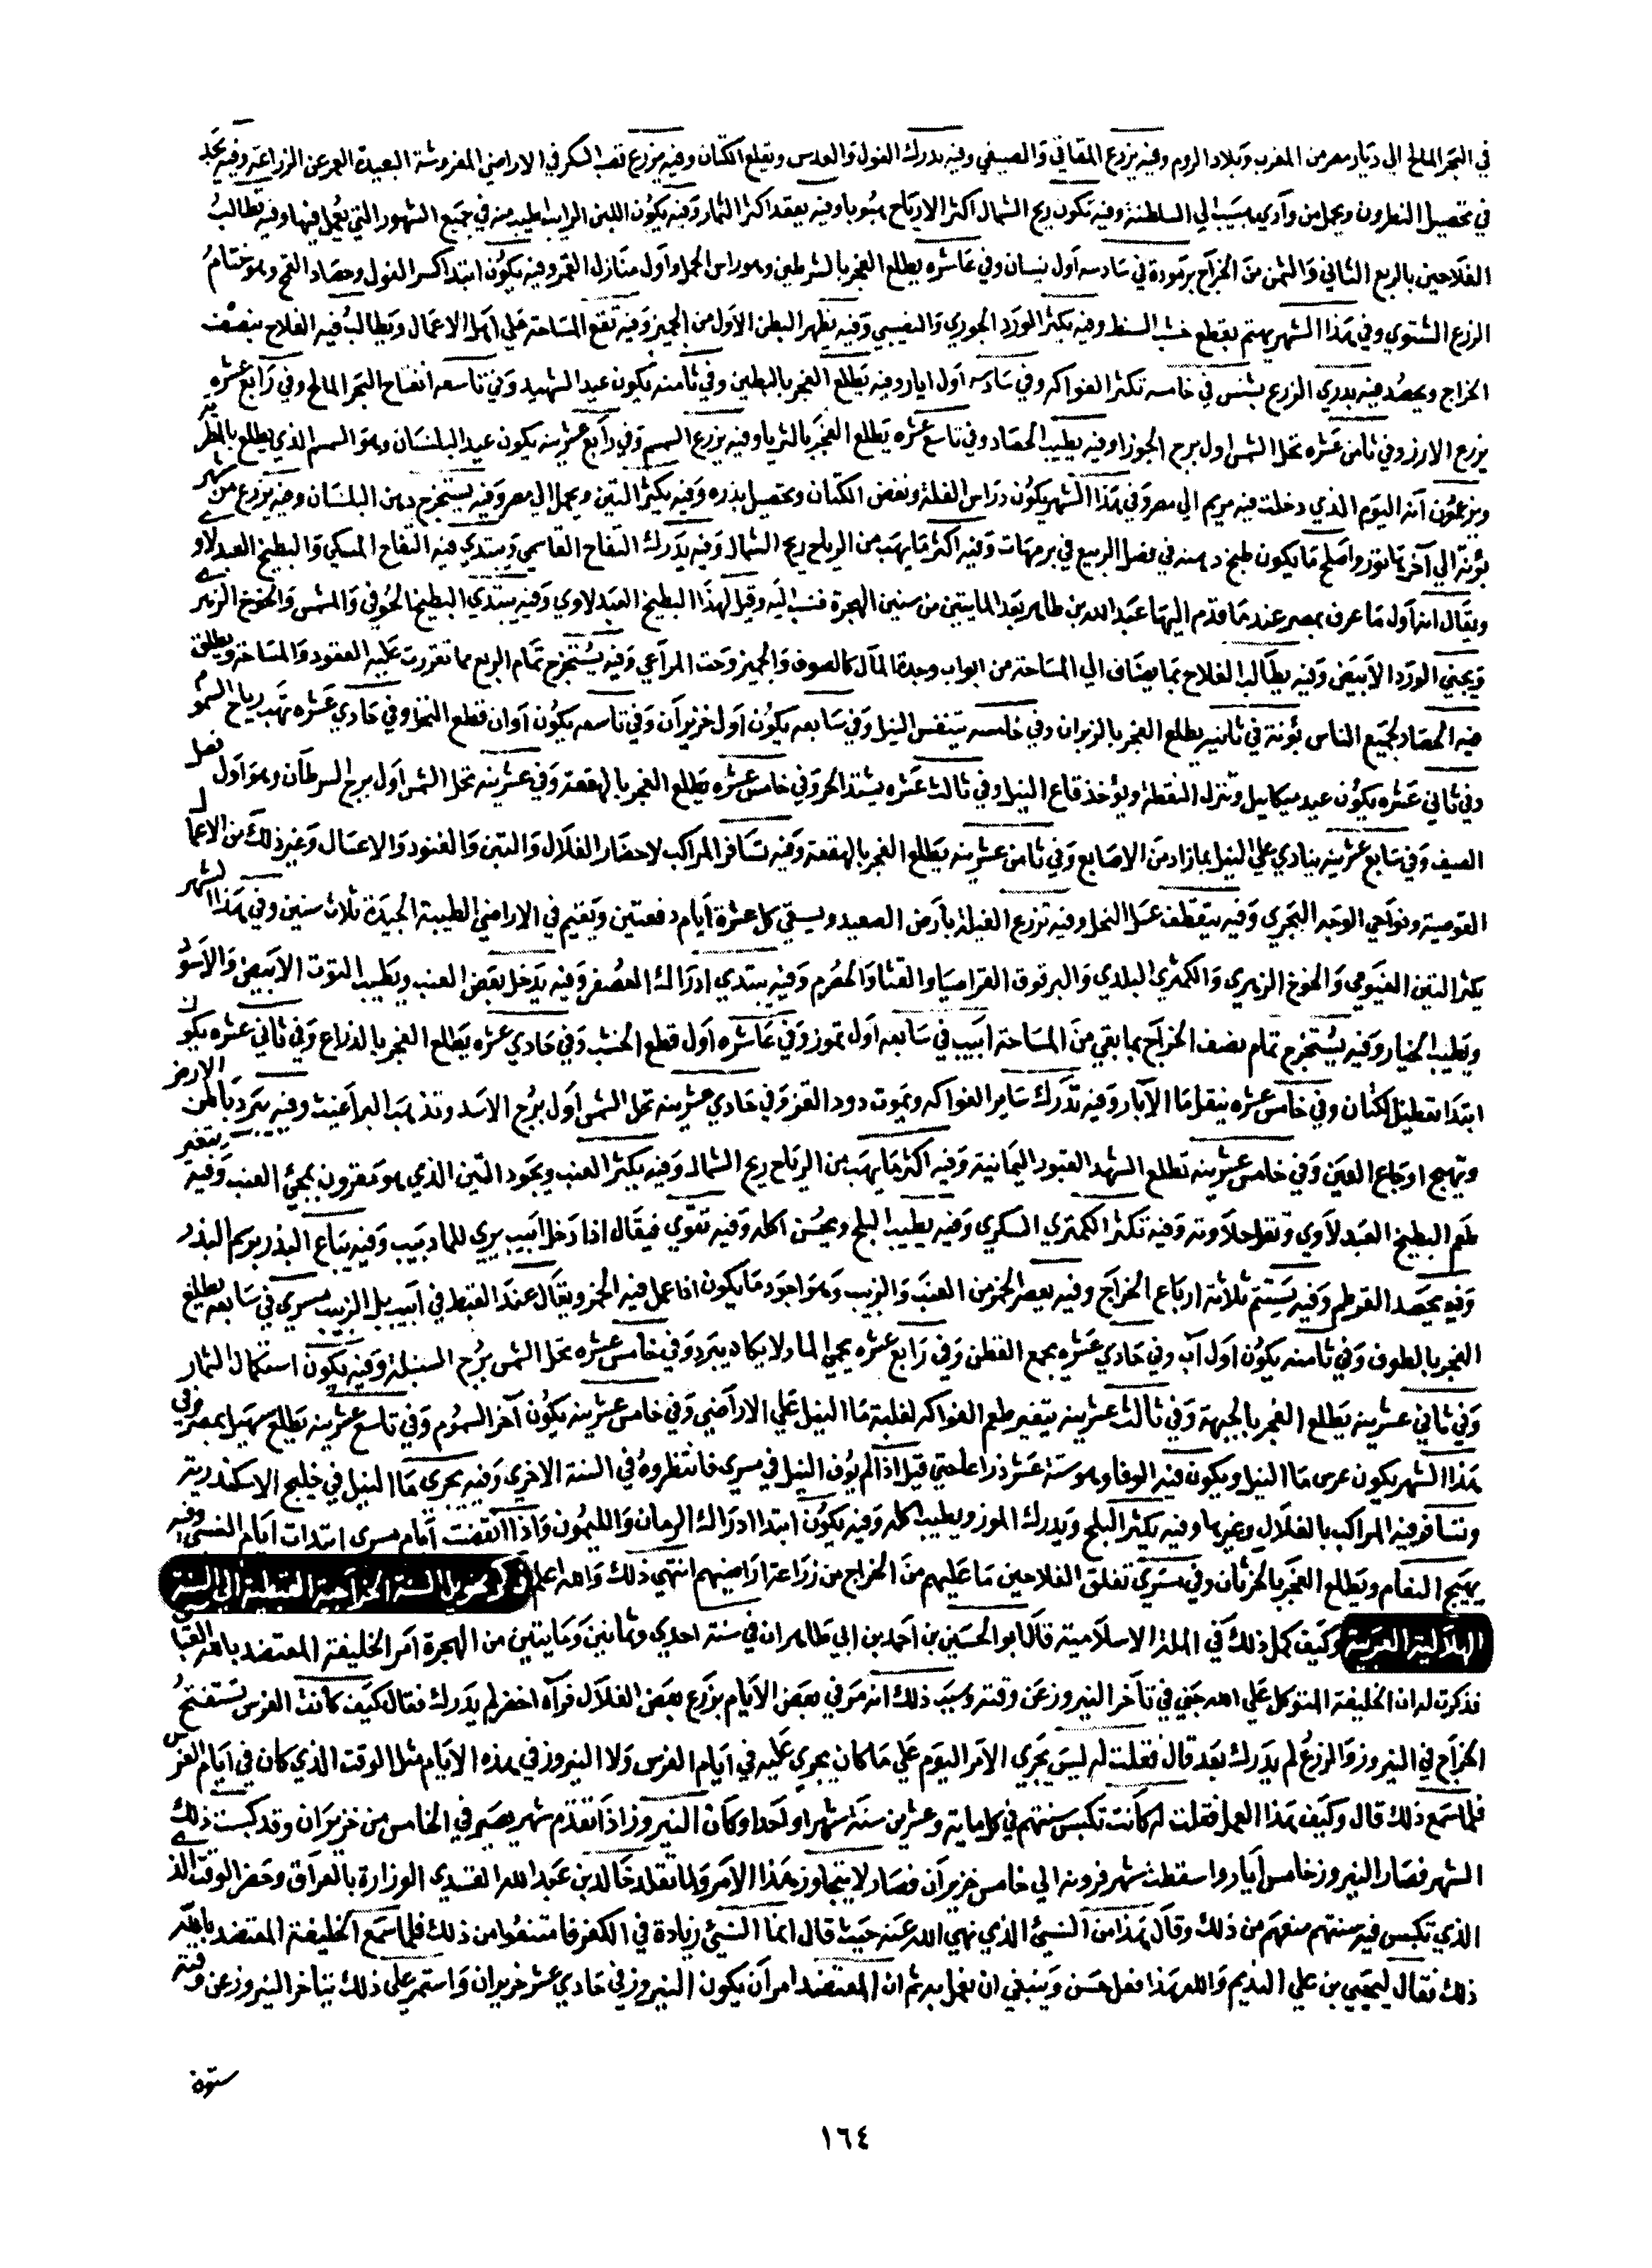 في البحر المالح الي ديار مصر من المغرب وبلاد الروم وفيه يزرع المقاثي والصيفي وفيه يدرك الفول والعدس ويقلع الكتان وفيه يزرع قصب السكر في الاراضي المفروشة البعيدة العهد عن الزراعة وفيه يجد
في تحصيل النطرون ويحمل من وادي هبيب الي السلطنة وفيه تكون ريح الشمال اكثر الارياح هبوبا وفيه يعقد اكثر الثمار وفيه يكون اللبن الرايب اطيب منه في جميع الشهور التي يعمل فيها وفيه يطالب
الفلاحين بالربع الثاني والثمن من الخراج برمودة في سادسه اول نيسان وفي عاشره يطلع الفجر بالشرطين وهو راس الحمل واول منازل القمر وفيه يكون ابتدا كسر الفول وحصاد القمح وهو ختام
الزرع الشتوي وفي هذا الشهر يهتم بقطع خشب السنط وفيه يكثر الورد الجوري والنفيسي وفيه يظهر البطن الاول من الجميز وفيه تقع المساحة علي اهل الاعمال ويطالب فيه الفلاح بنصف
الخراج ويحصد فيه بدري الزرع بشنس في خامسه تكثر الفواكه وفي سادسه اول ايار وفيه يطلع الفجر بالبطين وفي ثامنه يكون عيد الشهيد وفي تاسعه انفتاح البحر المالح وفي رابع عشره
يزرع الارز وفي ثامن عشره تحل الشمس اول برج الجوزا وفيه يطيب الحصاد وفي تاسع عشره يطلع الفجر بالثريا وفيه يزرع السمسم وفي رابع عشرينه يكون عيد البلسان وهو السمسم الذي يطلع
ويزعمون انه اليوم الذي دخلت فيه مريم الي مصر وفي هذا الشهر يكون دراس الغلة ونفض الكتان وتحصيل بذره وفيه يكثر التين ويحمل الي مصر وفيه يستخرج دهن البلسان وفيه يزرع من شهر
بؤنة الي آخر هاتور واصلح ما يكون طبخ دهنه في فصل الربيع في برمهات وفيه اكثر ما يهب من الرياح ريح الشمال وفيه يدرك التفاح القاسمي ويبتدي فيه التفاح المسكي والبطيخ العبدلاوي
ويقال انه اول ما عرف بمصر عند ما قدم اليها عبد الله بن طاهر بعد المايتين من سنين الهجرة فنسب اليه وقيل لهذا البطيخ العبدلاوي وفيه يبتدي البطيخ الحوفي والمشمس والخوخ الزهري
ويجني الورد الابيض وفيه يطالب الفلاح بما يضاف الي المساحة من ابواب وجدة المال كالصوف والجميز وحق المراعي وفيه يستخرج تمام الربع مما تقررت عليه العقود والمساحة ويطلق
فيه الحصاد لجميع الناس بؤنة في ثانيه يطلع الفجر بالدبران وفي خامسه يتنفس النيل وفي سابعه يكون اول خزيران وفي تاسعه يكون اوان قطع النحل وفي حادي عشره تهب رياح السموم
وفي ثاني عشره يكون عيد ميكاييل وتنزل النقطة ويؤخذ قاع النيل وفي ثالث عشره يشتد الحر وفي خامس عشره يطلع الفجر بالهقعة وفي عشرينه تحل الشمس اول برج السرطان وهو اول فصل
الصيف وفي سابع عشرينه ينادي علي النيل بما زاد من الاصابع وفي ثامن عشرينه يطلع الفجر بالهقعة وفيه تسافر المراكب لاحضار الغلال والتبن والقنود والاعسال وغير ذلك من الاعمال
القوصية ونواحي الوجه البحري وفيه يقطف عسل النحل وفيه تزرع النيلة بارض الصعيد ويسقي كل عشرة ايام دفعتين ويقيم في الاراضي الطيبة الجيدة ثلاث سنين وفي هذا الشهر
يكثر التين الفيومي والخوخ الزهري والكمثري البلدي والبرقوق القراصيا والقثا والحصرم وفيه يبتدي ادراك العصفر وفيه يدخل بعض العنب ويطيب التوت الابيض والاسود
ويطيب الخيار وفيه يستخرج تمام نصف الخراج بما بقي من المساحة ابيب في سابعه اول تموز وفي عاشره اول قطع الخشب وفي حادي عشره يطلع الفجر بالذراع وفي ثاني عشره يكون
ابتدا تعطيل الكتان وفي خامس عشره ينقل ما الآبار وفيه تدرك ساير الفواكه ويموت دود القز وفي حادي عشرينه تحل الشمس اول برج الاسد وتذهب البراغيث وفيه يبرد باطن الارض
وتهيج اوجاع العين وفي خامس عشرينه تطلع الشعري العبور اليمانية وفيه اكثر ما يهب من الرياح ريح الشمال وفيه يكثر العنب ويجود التين الذي هو مقرون بمجيء العنب وفيه يتغير
طعم البطيخ العبدلاوي وتقل حلاوته وفيه تكثر الكمثري السكري وفيه يطيب البلح ويحسن اكله وفيه تقوي فيقال اذا دخل ابيب يري للما دبيب وفيه يباع البذر برسم البذر
وفيه يحصد القرطم وفيه يستتم ثلاثة ارباع الخراج وفيه يعصر الخمر من العنب والزبيب وهو اجود ما يكون اذا عمل فيه الخمر ويقال عند القبط في ابيب بل الزبيب مسري في سابعه يطلع
الفجر بالطرف وفي ثامنه يكون اول آب وفي حادي عشره يجمع القطن وفي رابع عشره يحمي الما ولا يكاد يبرد وفي خامس عشره تحل الشمس برج السنبلة وفيه يكون استكمال الثمار
وفي ثاني عشرينه يطلع الفجر بالجبهة وفي ثالث عشرينه يتغير طعم الفواكه لغلبة ما النيل علي الاراضي وفي خامس عشرينه يكون آخر السموم وفي تاسع عشرينه يطلع سهيل بمصر وفي
هذا الشهر يكون عرس ما النيل ويكون فيه الوفا وهو ستة عشر ذراعا حتي قيل اذا لم يوف النيل في مسري فانتظروه في السنة الاخري وفيه يجري ما النيل في خليج الاسكندرية
وتسافر فيه المراكب بالغلال وغيرها وفيه يكثر البلح ويدرك الموز ويطيب اكله وفيه يكون ابتدا ادراك الرمان والليمون واذا انقضت ايام مسري ابتدات ايام النسيء وفيه
يهيج النعام ويطلع الفجر بالخرثان وفي مسري تغلق الفلاحين ما عليهم من الخراج من زراعة اراضيهم انتهي ذلك والله اعلم ذكر تحويل السنة الخراجية القبطية الي السنة
الهلالية العربية وكيف كمل ذلك في الملة الاسلامية قال ابو الحسين بن احمد بن ابي طاهر ان في سنة احدي وثمانين ومايتين من الهجرة امر الخليفة المعتضد بالله
فذكرت له ان الخليفة المتوكل علي الله جني في تأخر النيروز عن وقته وسبب ذلك انه مر في بعض الايام بزرع بعض الغلال فرآه اخضر لم يدرك فقال كيف كانت الفرس تستفتح
الخراج في النيروز والزرع لم يدرك بعد قال فقلت له ليس يجري الامر اليوم علي ما كان يجري عليه في ايام الفرس ولا النيروز في هذه الايام مثل الوقت الذي كان في ايام الفرس
فلما سمع ذلك قال وكيف هذا العمل فقلت له كانت تكبس سنتهم في كل ماية وعشرين سنة شهرا واحدا وكان النيروز اذا تقدم شهر يصير في الخامس من خزيران وقد كبست ذلك
الشهر فصار النيروز خامس ايار واسقطت شهر فردته الي خامس خزيران فصار لا يتجاوز هذا الامر ولما تقلد خالد بن عبد الله القسري الوزارة بالعراق وحضر الوقت الذي
الذي تكبس فيه سنتهم منعهم من ذلك وقال هذا من النسيء الذي نهي الله عنه حيث قال انما النسيء زيادة في الكفر فامتنعوا من ذلك فلما سمع الخليفة المعتضد بالله
ذلك فقال ليحيي بن علي النديم والله هذا فعل حسن وينبغي ان نعمل به ثم ان المعتضد امر ان يكون النيروز في حادي عشر خزيران واستمر علي ذلك يتاخر النيروز عن وقته
ستة
١٦٤